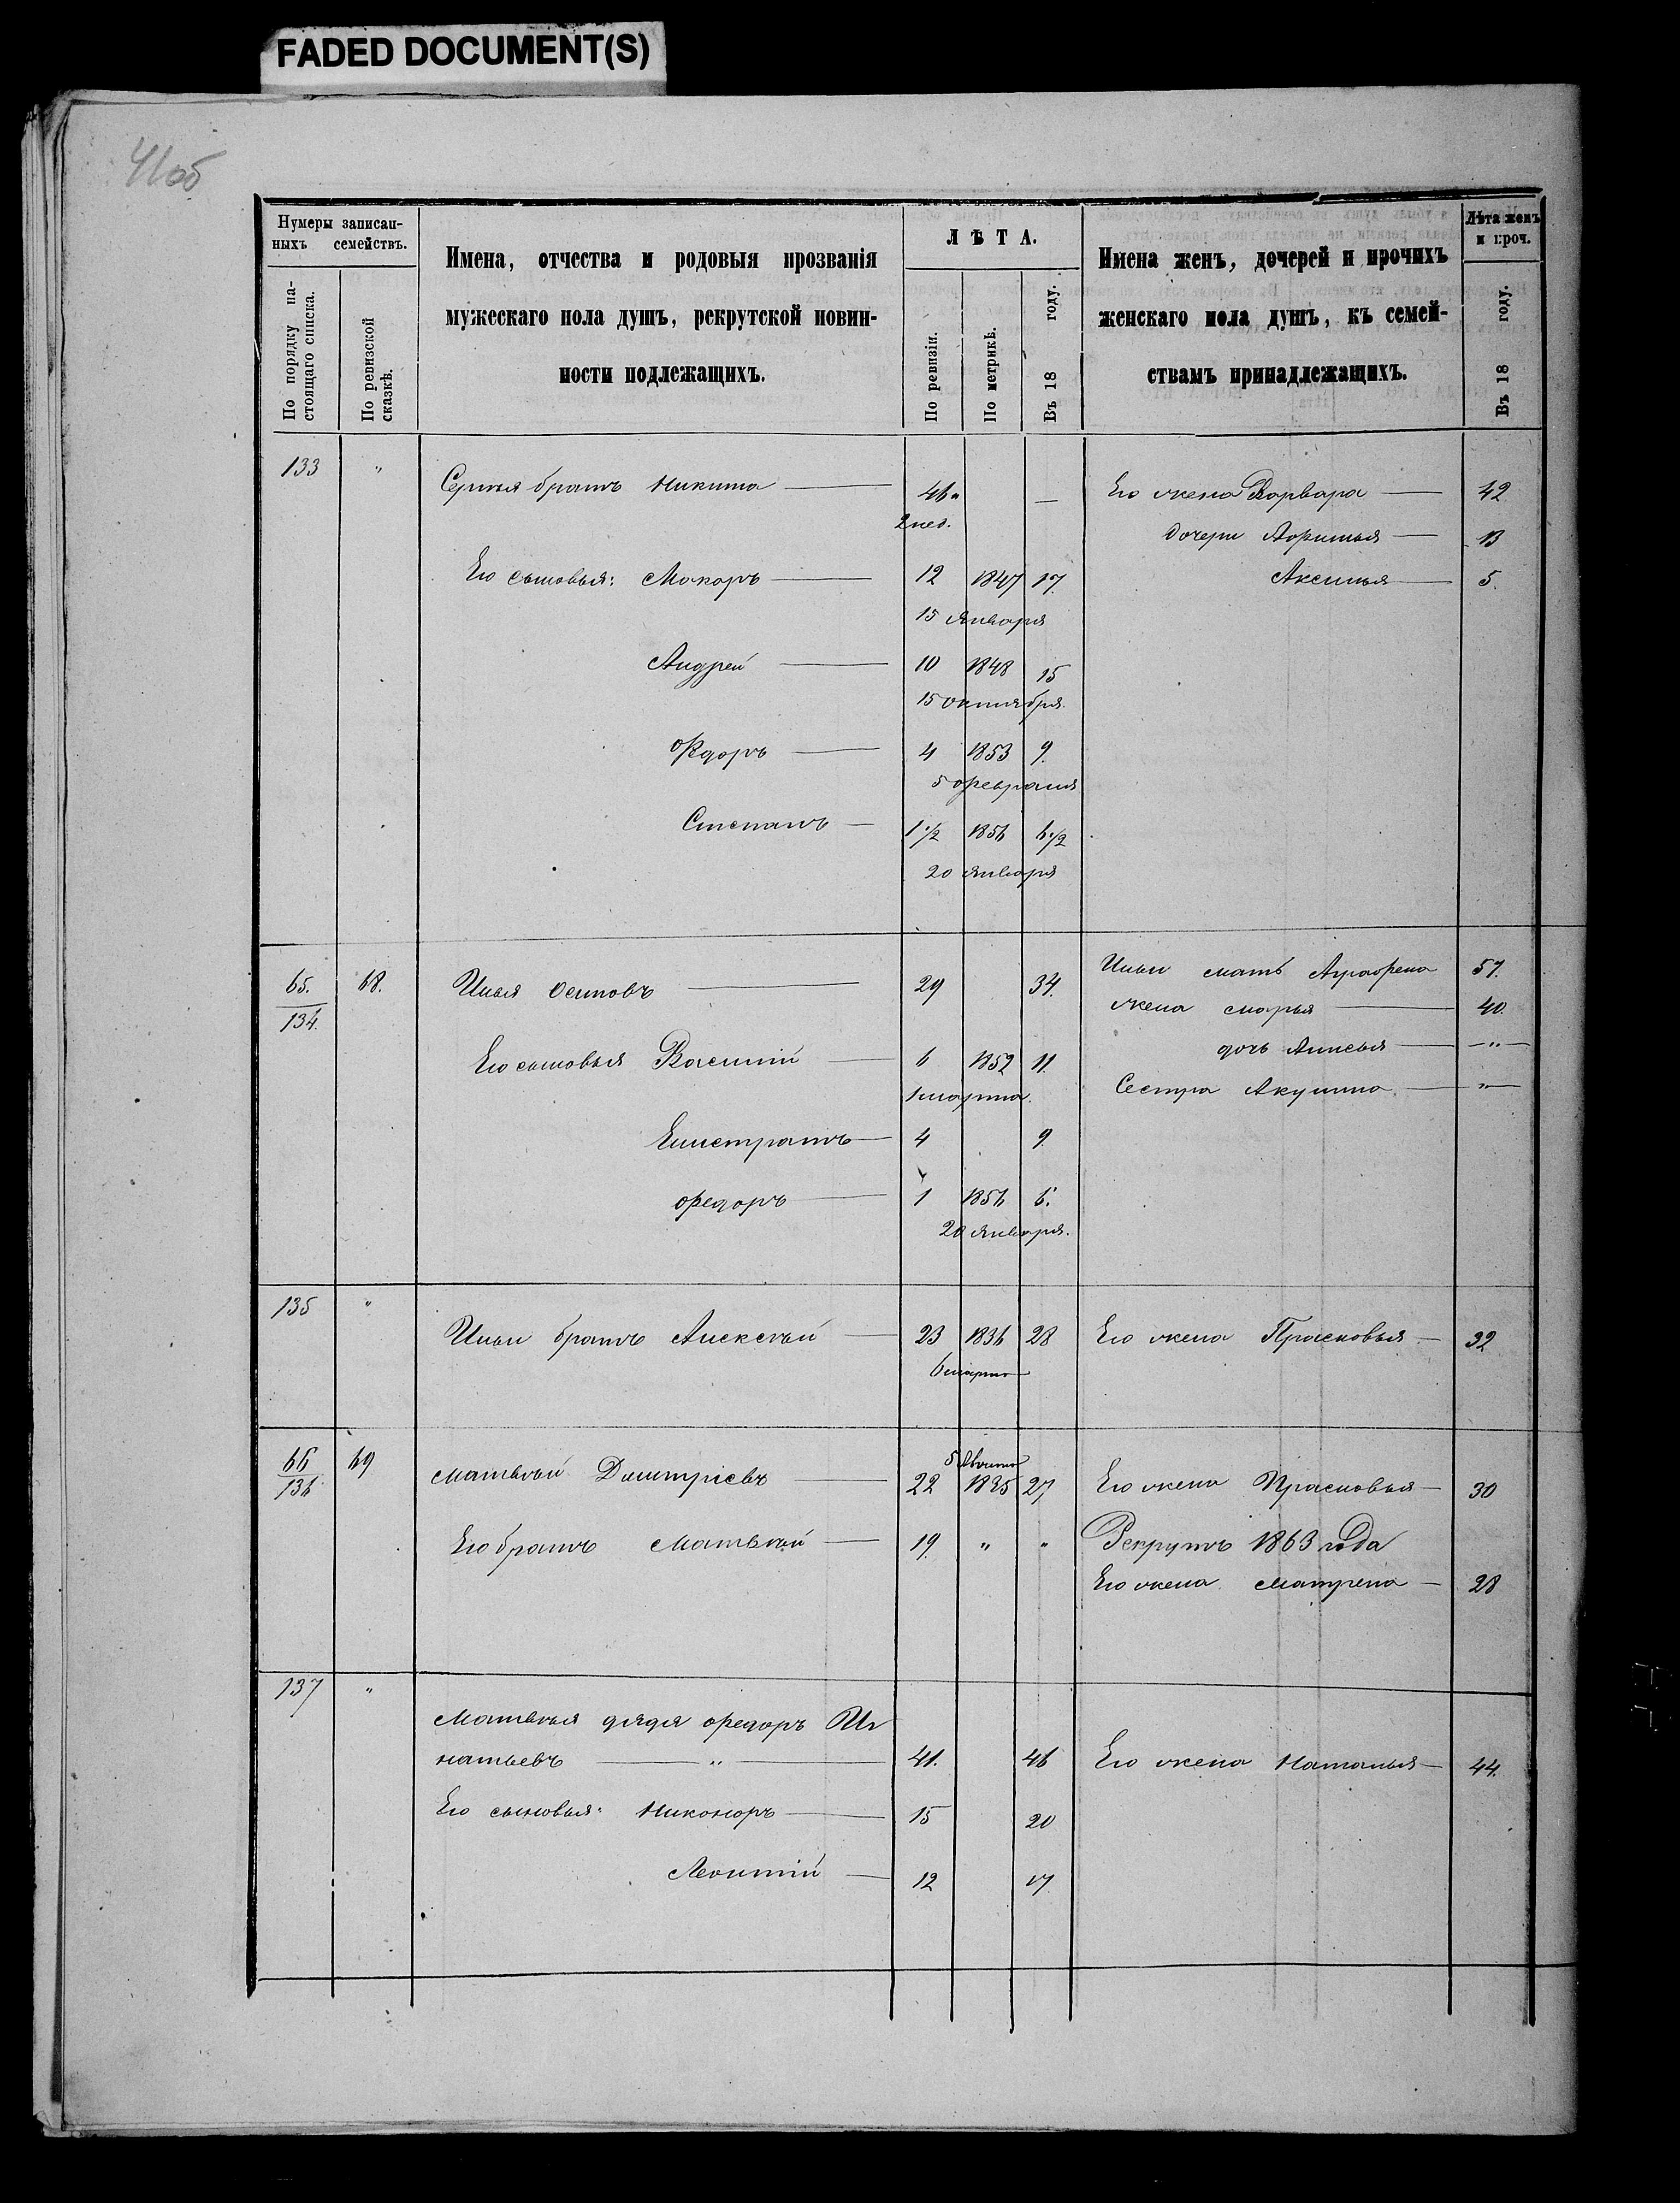 FADED DOCUMENT(S)
41об
Нумеры записан-
ныхъ семействъ.
По порядку на-
стоящаго списка.
По ревизской
сказкѣ.
Имена, отчества и родовыя прозванія
мужескаго пола душъ, рекрутской повин-
ности подлежащихъ.
ЛѢТА.
По ревизіи.
По метрикѣ.
Въ 18 году.
Имена женъ, дочерей и прочихъ
женскаго пола душъ, къ семей-
ствамъ принадлежащихъ.
Лѣта женъ
и проч.
Въ 18 году.
133 " братъ Никита — 46 — Его жена Варвара — 42
2 нед.
дочери — 13
Его сыновья: Макаръ — 12 1847 17. Аксинья — 5.
15 Января
Андрей — 10 1848 15
15 октября
Ѳедоръ — 4 1853 9.
5 февраля
Степанъ — 1 1/2 1856 6 1/2
20 Января
65. 68. Илья Осиповъ — 29 34. Ильи мать Аграфена 57.
134.
жена Марья — 40.
Его сыновья Василій — 6 1852 11. дочь Анисья — "
1 марта. Сестра Акулина — "
Елистратъ — 4 9.
Федоръ — 1 1856 6.
20 Января.
135 " Ильи братъ Алексѣй — 23 1836 28 Его жена Прасковья — 32
6 марта
66 69 Матвѣй Дмитріевъ — 22 1835 27 Его жена Прасковья — 30
136
Его братъ Матвѣй — 19. " " Рекрутъ 1863 года
Его жена Матрена — 28
137 " Матвѣя дядя Федоръ Иг
натьевъ — " — 41. 46 Его жена Наталья — 44.
Его сыновья: Никоноръ — 15 20
Леонтій — 12 17.